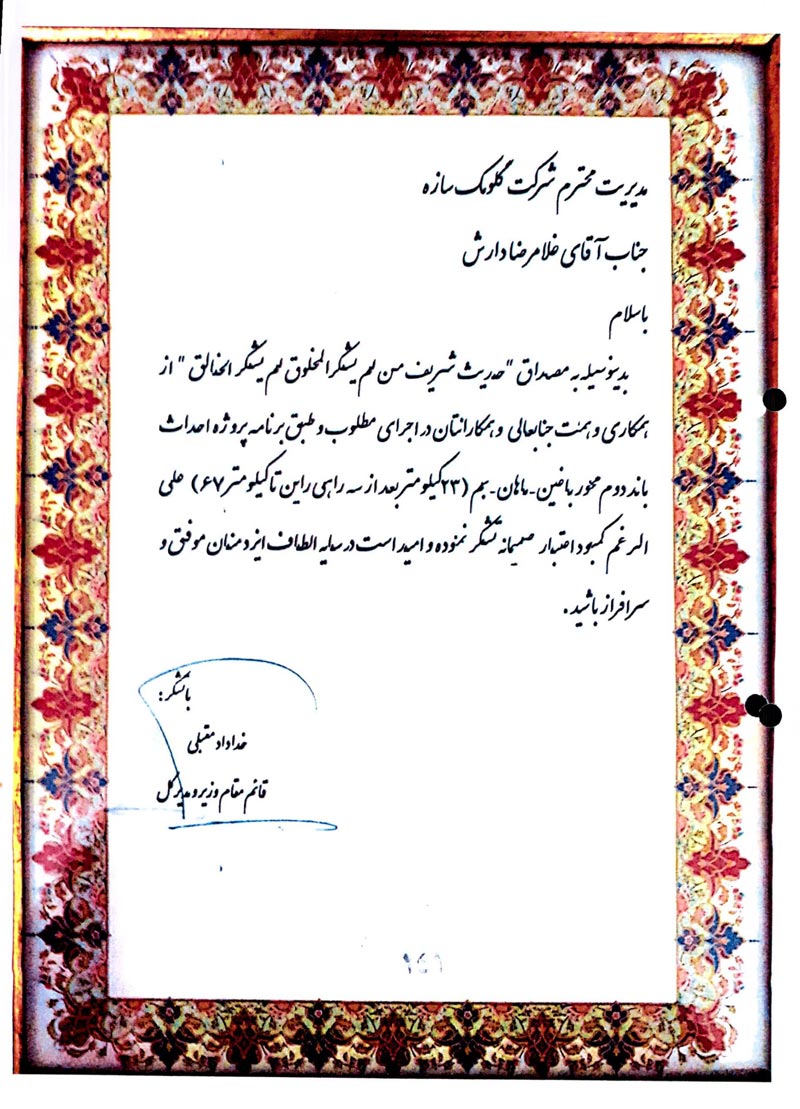 مدیریت محترم شرکت گلومک سازه
جناب آقای غلامرضا دارش
باسلام
بدینوسیله به مصداق "حدیث شریف من لم یشکر المخلوق لم یشکر الخالق" از
همکاری و همت جنابعالی و همکارانتان در اجرای مطلوب و طبق برنامه پروژه احداث
باند دوم محور باغین-ماهان-بم (۲۳کیلومتر بعد از سه راهی راین تا کیلومتر ۶۷) علی
الرغم کمبود اعتبار صمیمانه تشکر نموده و امید است در سایه الطاف ایزد منان موفق و
سرافراز باشید.
باتشکر:
خداداد مقبلی
قائم مقام وزیر و مدیرکل